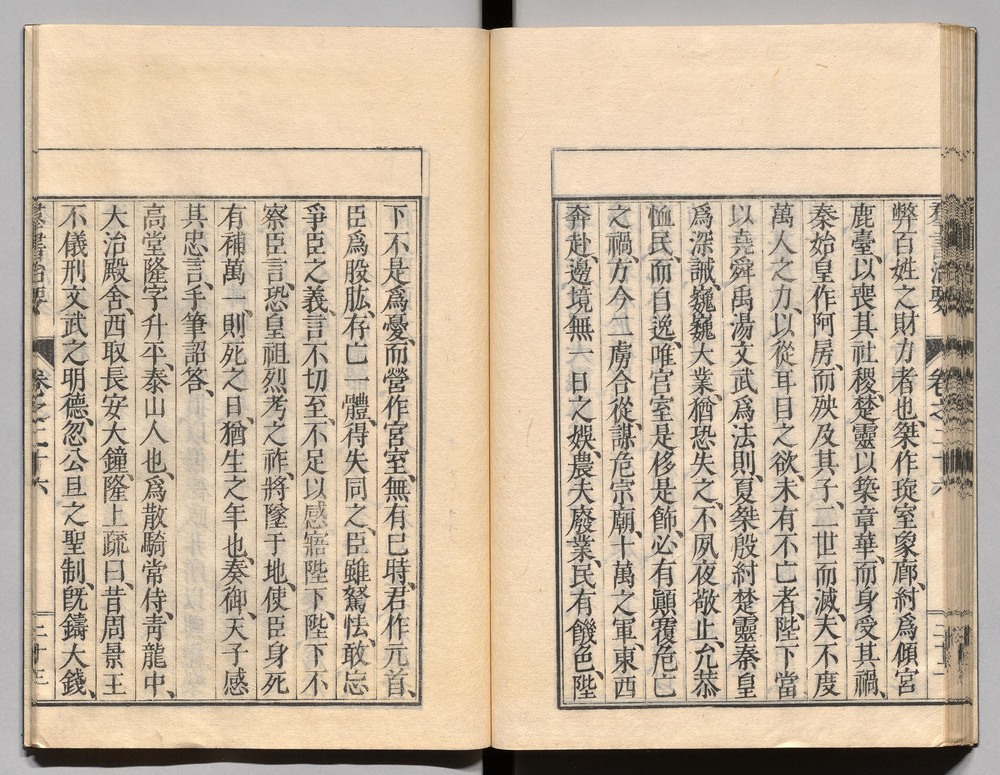 羣書治要 卷之二十六
弊百姓之財力者也、桀作琁室象廊、紂爲傾宮
鹿臺、以喪其社稷、楚靈以築章華、而身受其禍、
秦始皇作阿房、而殃及其子、二世而滅、夫不度
萬人之力、以從耳目之欲、未有不亡者、陛下當
以堯舜禹湯文武爲法則、夏桀殷紂楚靈秦皇
爲深誡、巍巍大業、猶恐失之、不夙夜敬止、允恭
恤民、而自逸、唯宮室是侈是飾、必有顚覆危亡
之禍、方今二虜合從、謀危宗廟、十萬之軍、東西
奔赴、邊境無一日之娛、農夫廢業、民有饑色、陛
下不是爲憂、而營作宮室、無有已時、君作元首、
臣爲股肱、存亡一體、得失同之、臣雖駑怯、敢忘
爭臣之義、言不切至、不足以感寤陛下、陛下不
察臣言、恐皇祖烈考之祚、將墜于地、使臣身死
有補萬一、則死之日、猶生之年也、奏御、天子感
其忠言、手筆詔答、
高堂隆字升平、泰山人也、爲散騎常侍、靑龍中、
大治殿舍、西取長安大鐘、隆上疏曰、昔周景王
不儀刑文武之明德、忽公旦之聖制、旣鑄大錢、
羣書治要 卷之二十六 二十三